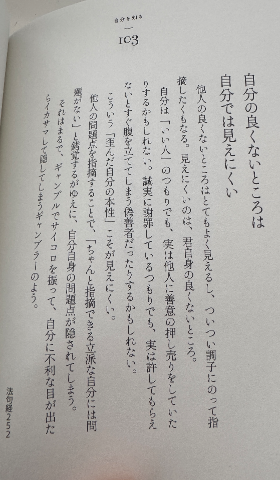 自分を知る
103
自分の良くないところは
自分では見えにくい
他人の良くないところはとてもよく見えるし、ついつい調子にのって指
摘したくもなる。見えにくいのは、君自身の良くないところ。
自分は「いい人」のつもりでも、実は他人に善意の押し売りをしていた
りするかもしれない。誠実に謝罪しているつもりでも、実は許してもらえ
ないとすぐ腹を立ててしまう偽善者だったりするかもしれない。
こういう「歪んだ自分の本性」こそが見えにくい。
他人の問題点を指摘することで、「ちゃんと指摘できる立派な自分には問
題がない」と錯覚するがゆえに、自分自身の問題点が隠されてしまう。
それはまるで、ギャンブルでサイコロを振って、自分に不利な目が出た
らイカサマして隠してしまうギャンブラーのよう。
法句経252